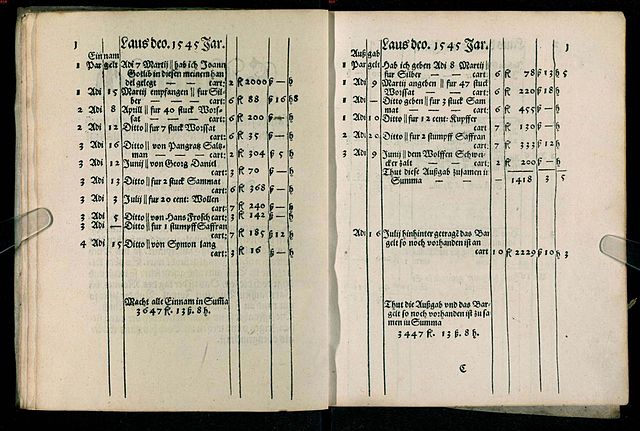 1 Laus deo. 1545 Jar.
Einnam
1 Par gelt Adi 7 Martij || hab ich Joann
Gotlib in diesen meinen han
del gelegt — — cart: 2 fl 2000 ß — h
1 Adi 15 Martij empfangen || fur Sil-
ber — — cart: 6 fl 88 ß 16 h 8
2 Adi 8 Aprill || fur 40 stuck Vorsta
sat — — cart: 6 fl 200 ß — h
2 Adi 12 Ditto || fur 7 stuck Vorssat
cart: 6 fl 35 ß — h
3 Adi 16 Ditto || von Pangratz Saltz-
man — — cart: 2 fl 304 ß 5 h
3 Adi 12 Junij || von Georg Daniel
cart: 3 fl 70 ß — h
3 Adi 13 Ditto || fur 2 stuck Sammat
cart: 6 fl 368 ß — h
3 Adi 3 Julij || fur 20 cent: Wollen
cart: 7 fl 240 ß — h
3 Adi 5 Ditto || von Hans Frosch cart: 3 fl 142 ß — h
3 Adi — Ditto || fur 1 stumpff Saffran
cart: 7 fl 185 ß 12 h
4 Adi 15 Ditto || von Symon lang
cart: 3 fl 16 ß — h
Macht alle Einnam in Suma
3647 fl. 13 ß. 8 h.
Laus deo. 1545 Jar. 1
Außgab
1 Par gelt Hab ich geben Adi 8 Martij
fur Silber — cart 6 fl 78 ß 13 h 5
1 Adi 9 Martij angeben || fur 47 stuck
Vorssat — — cart: 6 fl 220 ß 18 h
1 Adi — Ditto geben || fur 3 stuck Sam
mat — — cart: 6 fl 455 ß — h
1 Adi 10 Ditto || fur 12 cent: Kupffer
cart: 7 fl 130 ß — h
2 Adi 20 Ditto || fur 2 stumpff Saffran
cart: 7 fl 333 ß 12 h
3 Adi 9 Junij || dem Wolffen Schwei
cker zalt — — cart: 2 fl 200 ß — h
Thut diese Außgab zusamen in
Summa — — — 1418 3 5
Adi 16 Julij hinhinter getragē das Bar
gelt so noch vorhanden ist an
cart 10 fl 2229 ß 10 h 3
Thut die Außgab vnd das Bar-
gelt so noch vorhanden ist zu sa
men in Summa
3447 fl. 13 ß. 8 h.
C